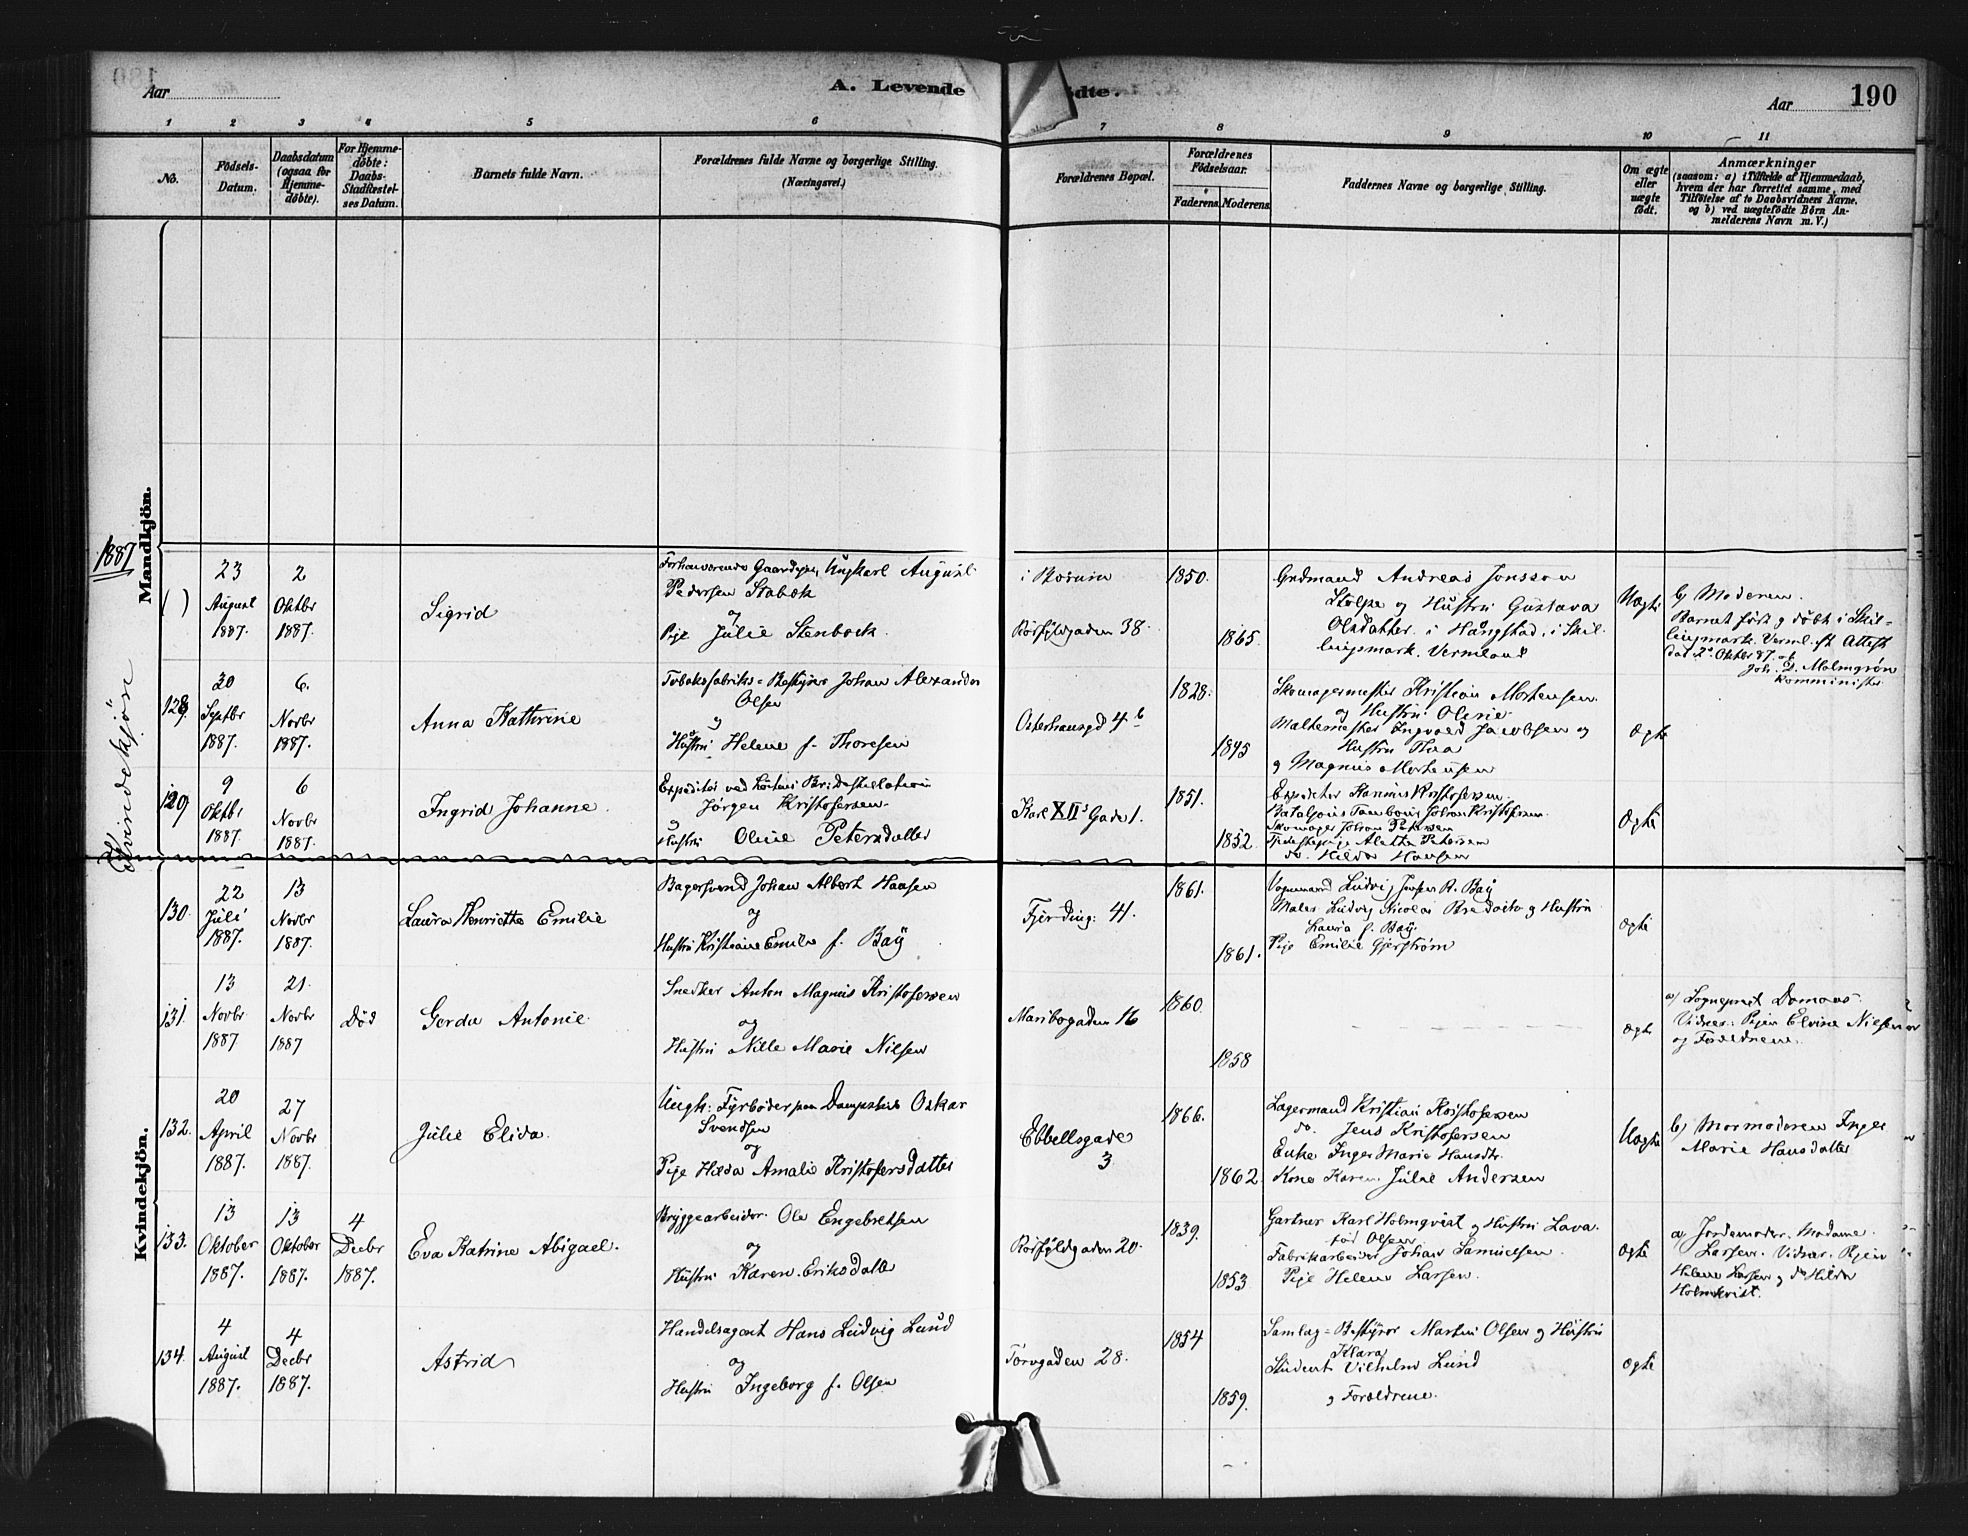 Aar
A. Levende
ödte.
Aar
190
1 2 3 4 5 6 7 8 9 10 11
No.
Födsels-
Datum.
Daabsdatum
(ogsaa for
Hjemme-
döbte).
For Hjemme-
döbte:
Daabs-
Stadfæstel-
ses Datum.
Barnets fulde Navn.
Forældrenes fulde Navne og borgerlige Stilling.
(Næringsvei.)
Forældrenes Bopæl.
Forældrenes
Födselsaar.
Faderens.
Moderens.
Faddernes Navne og borgerlige Stilling.
Om ægte
eller
uægte
födt.
Anmærkninger
(saasom: a) i Tilfælde af Hjemmedaab,
hvem der har forrettet samme, med
Tilföielse af to Daabsvidners Navne,
og b) ved uægtefödte Börn An-
melderens Navn m. V.)
1887
Mandkjön.
Kvindekjön
Kvindekjön.
( )
23
August
1887.
2
Oktbr
1887.
Sigrid
Ungkarl August
Pedersen Stabæk
og
Pige Julie Stenbock.
38.
1850.
1865.
Andreas Jonsson
Stolpe og Hustru Gustava
Olsdatter i Hångstad, i Skil-
lingsmark. Vermland
Uægte
b) Moderen.
Barnet født og døbt i Skil-
lingsmark. Verml. ifl. Attest
dat. 2 Oktbr 87. af
Joh. D. Malmgrén
Komminister.
128.
20
Septbr
1887.
6.
Novbr
1887.
Anna Kathrine
Tobaksfabriks-Bestyrer Johan Alexander
Olsen
og
Hustru Helene f. Thoresen
Osterhausgd 4 b
1828.
1845
Skomagermester Kristian Mortensen
og Hustru Oline
Ingvald Jacobsen og
Hustru Thea
og Magnus Mortensen
Ægte
129
9
Oktbr
1887.
6
Novbr
1887.
Ingrid Johanne.
Jørgen Kristofersen
og
Hustru Oline Petersdatter
Karl XII's Gade 1.
1851.
1852.
Kristofersen.
Johan Kristofersen
Skomager Johan Petersen
Tjenestepige Alette Petersen
do. Hilda Hansen
Ægte
130.
22
Juli
1887.
13
Novbr
1887.
Laura Henriette Emilie
Bagersvend Johan Albert Haasen
og
Hustru Kristiane Emilie f. Baÿ
Fjerding: 41.
1861.
1861.
Vognmand Ludvig Jesper R. Baÿ
Maler Ludvig Nicolai og Hustru
Laura f. Baÿ.
Pige Emilie Gjerstrøm
Ægte
131.
13
Novbr
1887
21.
Novbr
1887
Død
Gerda Antonie.
Snedker Anton Magnus Kristofersen
og
Hustru Nille Marie Nilsen
Maribogaden 16
1860.
1858
Ægte
a) Sogneprest Domaas.
Vidner: Pigen Elvine Nilsen
og Forældrene.
132.
20
April
1887.
27
Novbr
1887.
Julie Elida.
Ungk: Fyrbøder paa Dampskib Oskar
Svendsen
og
Pige Hilda Amalie Kristofersdatter
Ebbellsgade
3
1866.
1862.
Lagermand Kristian Kristofersen
do. Jens Kristofersen
Enke Inger Marie Hansdtr.
Kone Karen Julie Andersen
Uægte
b) Mormoderen Inger
Marie Hansdatter
133.
13
Oktober
1887.
13
Oktober
1887.
4
Decbr
1887.
Eva Katrine Abigael.
Bryggearbeider Ole Engebretsen
og
Hustru Karen Eriksdatter
20.
1839.
1853
Gartner Karl Holmqvist og Hustru Lava
fød Olsen
Fabrikarbeider Johan Samuelsen
Pige Helene Larsen.
Ægte
a) Jordemoder Madame
Larsen. Vidner. Pigen
Helene Larsen og do Hilda
Holmkvist.
134.
4
August
1887.
4
Decbr
1887.
Astrid
Handelsagent Hans Ludvig Lund
og
Hustru Ingeborg f. Olsen
Torvgaden 28.
1854
1859.
Samlag-Bestyrer Martin Olsen og Hustru
Klara
Student Vilhelm Lund
og Forældrene.
Ægte